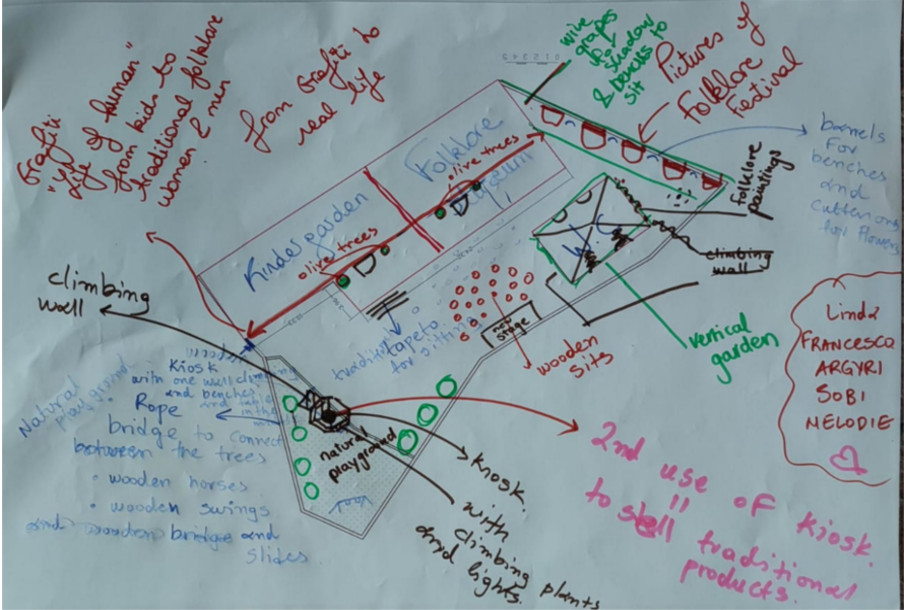 Grafiti
"life of human"
from kids to
traditional folklore
women & men
from Grafiti to
real life
wine
grapes
for
shadow
& benefits to
sit
Pictures of
Folklore
Festival
barrels
for
benches
and
for flowers
folklore
paintings
climbing
wall
vertical
garden
Kindergarden
olive trees
Folklore
olive trees
W C
new
stage
wooden
sits
tapeto
for sitting
climbing
wall
Natural
playground
Kiosk
with one wall
and benches
Rope
bridge to connect
between the trees
• wooden horses
• wooden swings
and wooden bridges and
slides
natural
playground
Kiosk
with
climbing plants
and lights.
2nd use of kiosk.
=
to sell traditional
products.
Linda
FRANCESCA
ARGYRI
SOBI
MELODIE